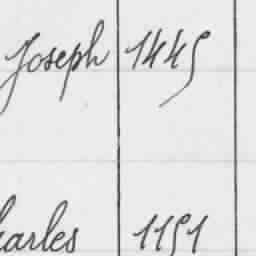 Joseph 1445
harles 1151